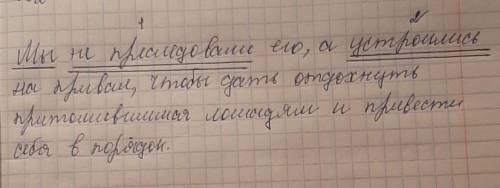 1 2
Мы не преследовали его, а устроились
на привал, чтобы дать отдохнуть
притомившимся лошадям и привести
себя в порядок.